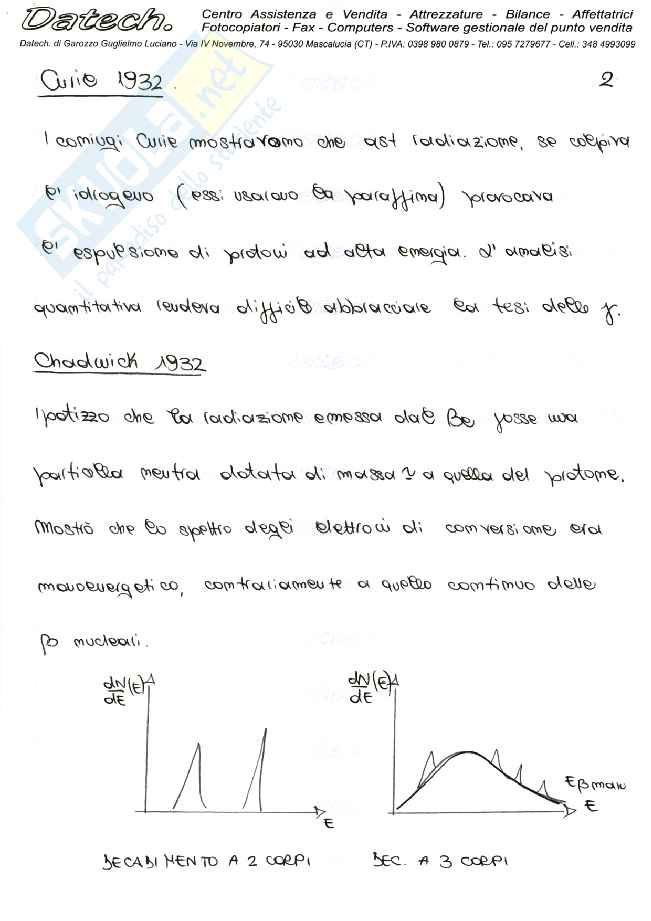 Datech. Centro Assistenza e Vendita - Attrezzature - Bilance - Affettatrici
Fotocopiatori - Fax - Computers - Software gestionale del punto vendita
Datech. di Garozzo Guglielmo Luciano - Via IV Novembre, 74 - 95030 Mascalucia (CT) - P.IVA: 0398 980 0879 - Tel.: 095 7279577 - Cell.: 348 4993099
Curie 1932. 2
I coniugi Curie mostravano che tale radiazione, se colpiva
l'idrogeno (essi usarono la paraffina) provocava
l'espulsione di protoni ad alta energia. L'analisi
quantitativa rendeva difficile abbracciare la tesi delle γ.
Chadwick 1932
Ipotizzo che la radiazione emessa dal Be fosse una
particella neutra dotata di massa a quella del protone.
Mostrò che lo spettro degli elettroni di conversione era
monoenergetico, contrariamente a quello continuo delle
β nucleari.
dN/dE (E) dN/dE (E)
Eβ max
E E
DECADIMENTO A 2 CORPI DEC. A 3 CORPI
SKUOLA.net
il paradiso dello studente